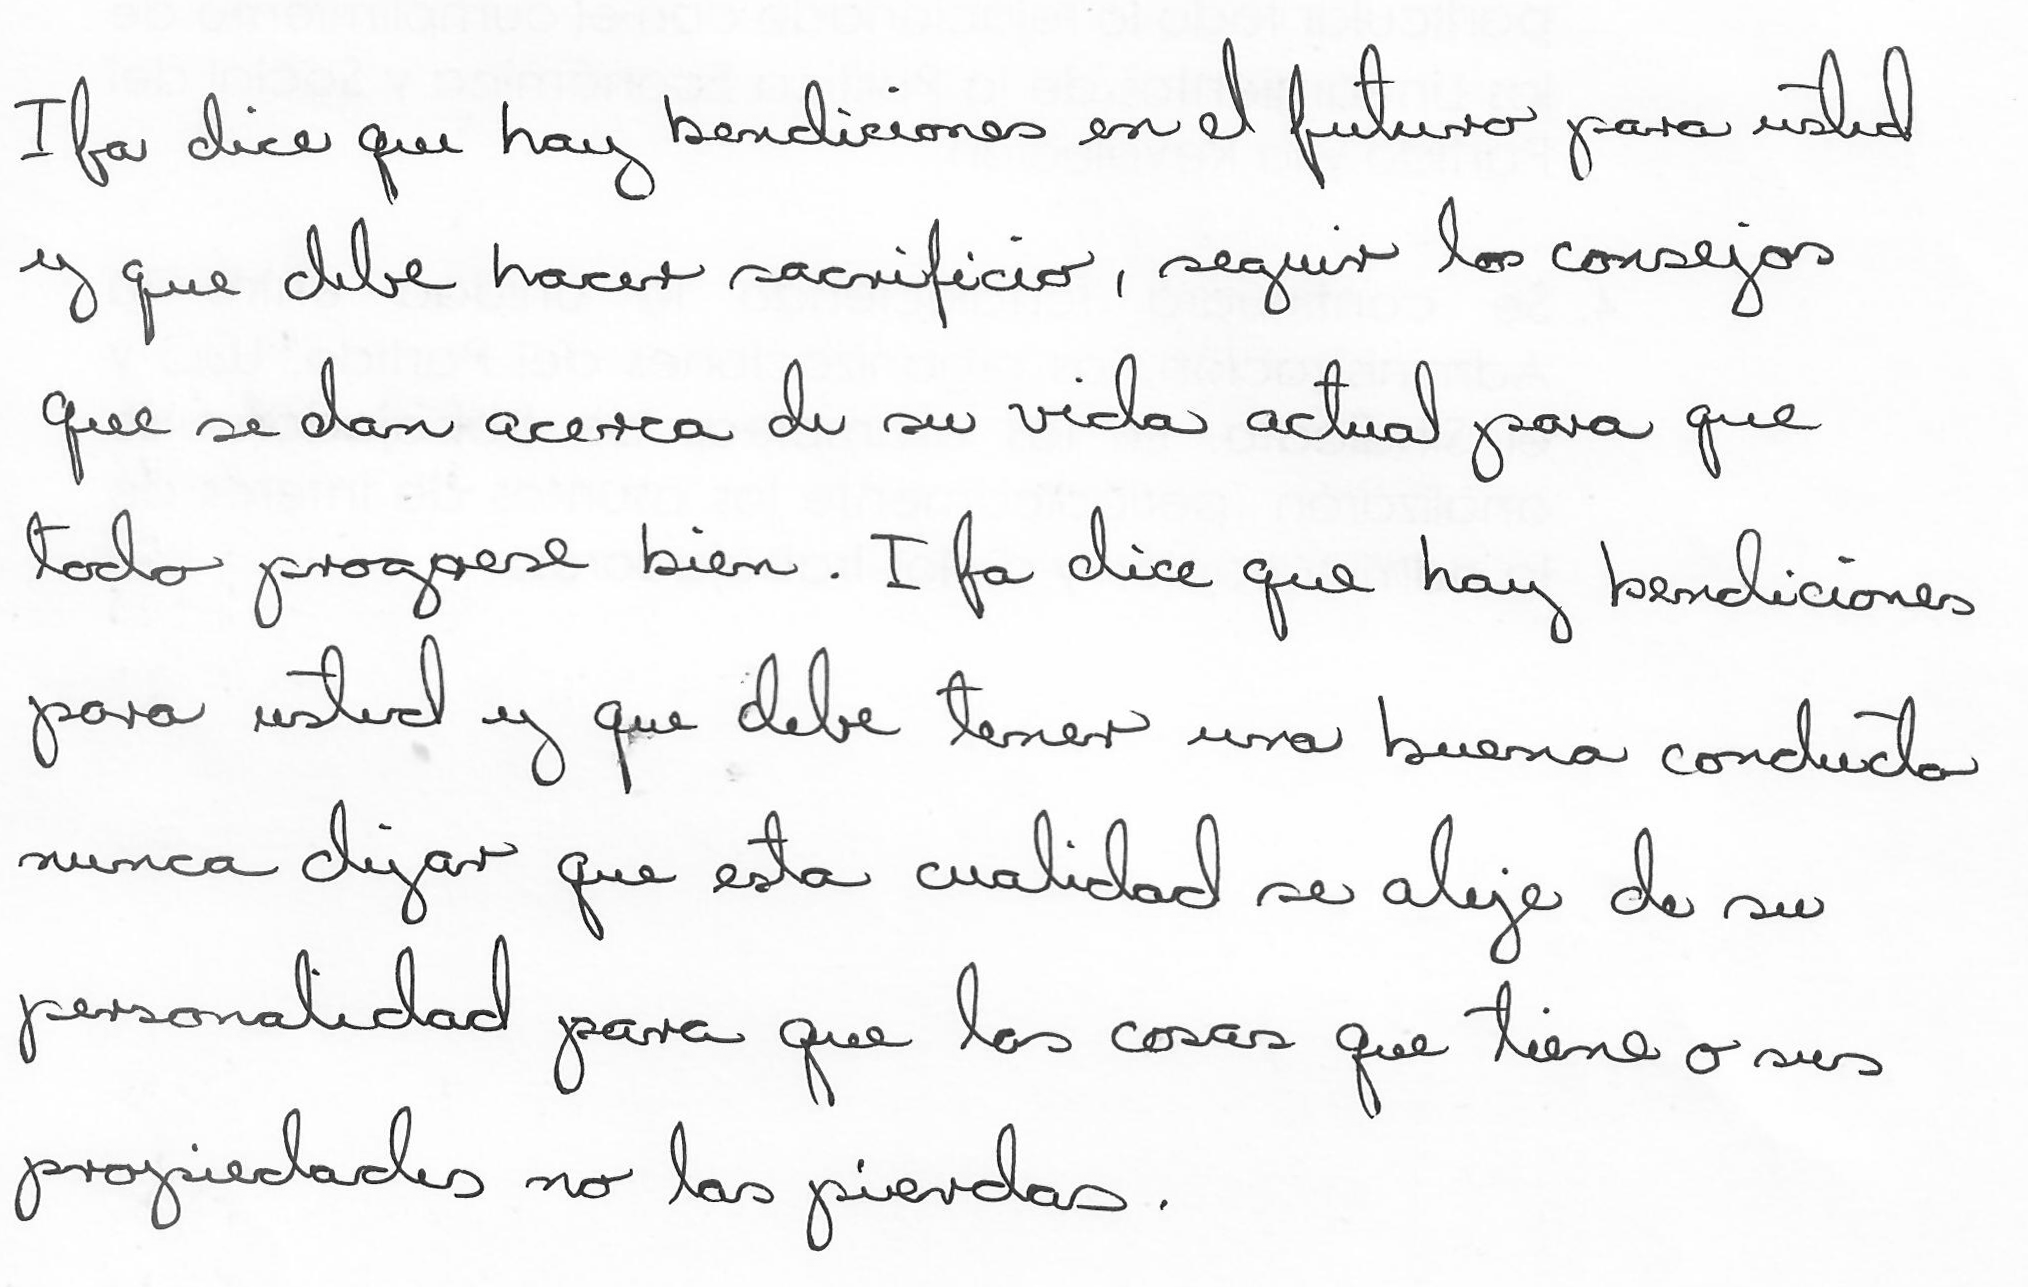 Ifa dice que hay bendiciones en el futuro para usted
y que debe hacer sacrificio, seguir los consejos
que se dan acerca de su vida actual para que
todo progrese bien. Ifa dice que hay bendiciones
para usted y que debe tener una buena conducta
nunca dejar que esta cualidad se aleje de su
personalidad para que las cosas que tiene o sus
propiedades no las pierdas.